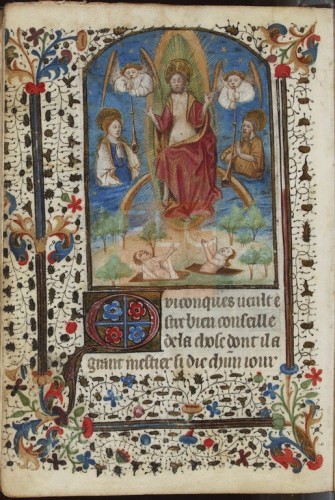 Quiconques ueult e
stre bien conseille
de la chose dont il a
grant mestier si die chūn iour